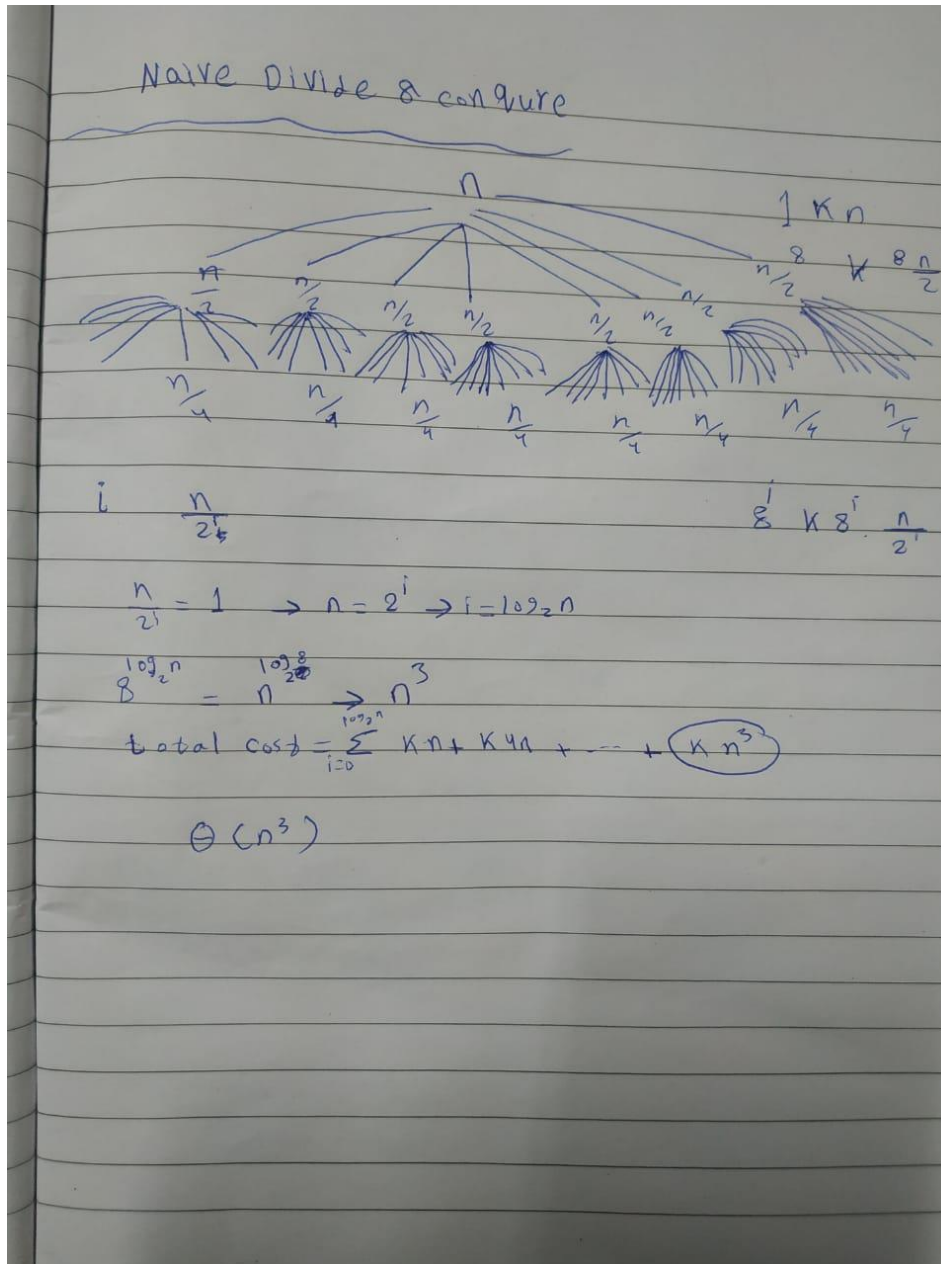 Naive Divide & conqure
n
1 K n
n/2 n/2 n/2 n/2 n/2 n/2 n/2 n/2 8 K 8 n/2
n/4 n/4 n/4 n/4 n/4 n/4 n/4 n/4
i n/2^i 8^i K 8^i . n/2^i
n/2^i = 1 → n = 2^i → i = log₂n
8^log₂n = n^log₂8 → n³
total cost = Σ_{i=0}^{log₂n} Kn + K4n + --- + Kn³
Θ(n³)